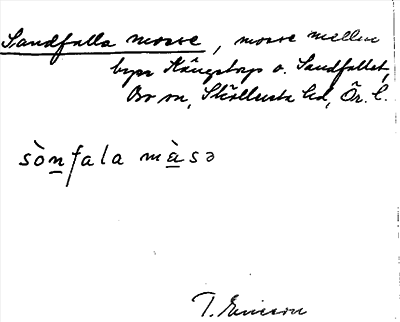 Sandfalla mosse, mosse mellan
byar Kångstorp o. Sandfallet,
Bo sn, Sköllersta hd, Ör. l.
sò̀nfala màsə
T. Ericson